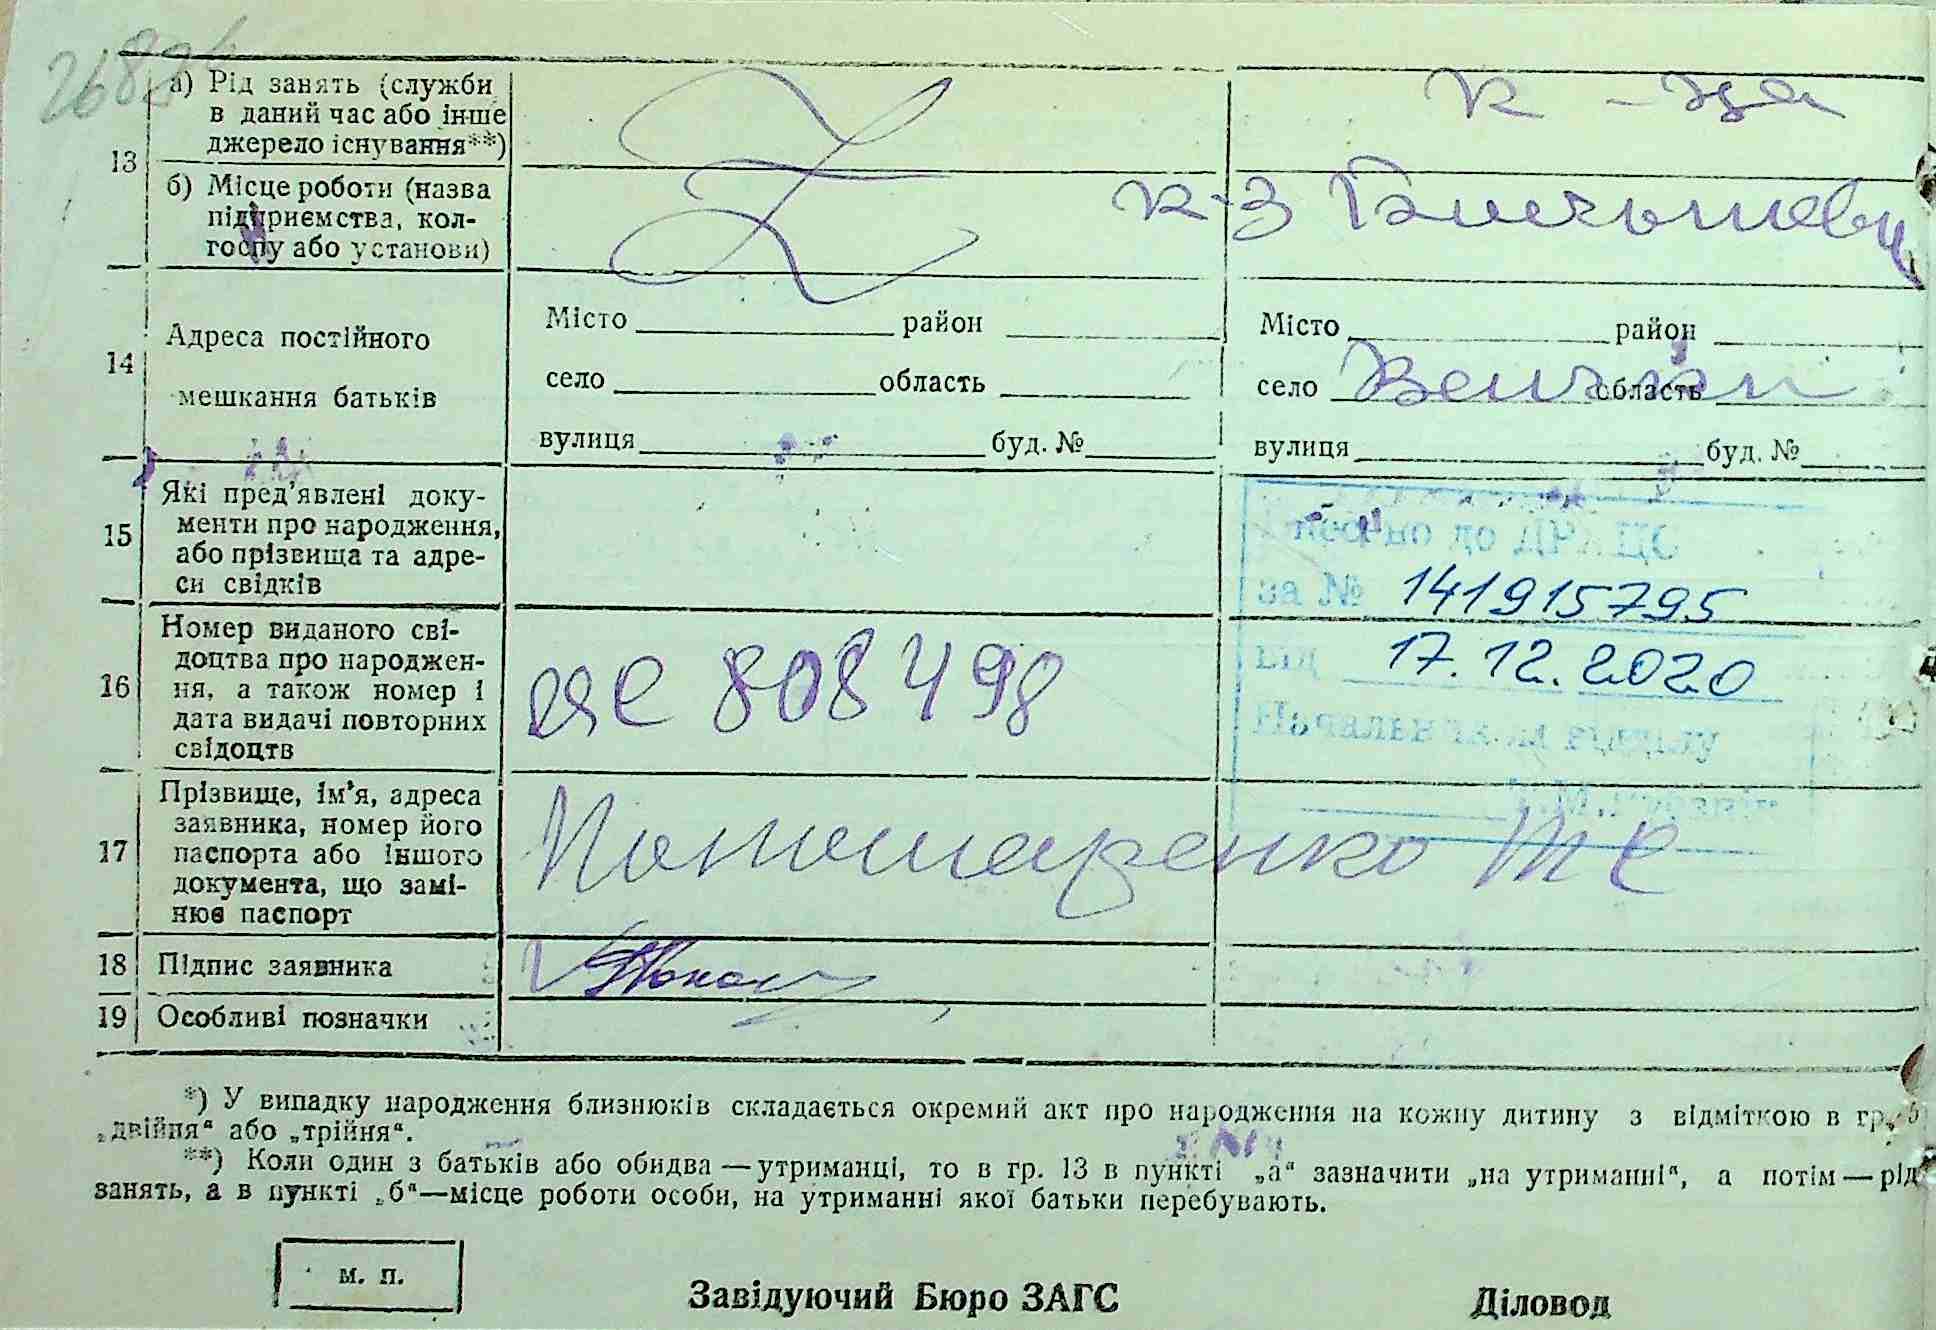 13
а) Рід занять (служби
в даний час або інше
джерело існування**)
к-ца
б) Місце роботи (назва
підприємства, кол-
госпу або установи)
к-з
14
Адреса постійного
мешкання батьків
Місто район
село область
вулиця буд. №
Місто район
село область
вулиця буд. №
15
Які пред'явлені доку-
менти про народження,
або прізвища та адре-
си свідків
до ДРАЦС
за № 141915795
від 17.12.2020
Начальник відділу
16
Номер виданого сві-
доцтва про народжен-
ня, а також номер і
дата видачі повторних
свідоцтв
808498
17
Прізвище, ім'я, адреса
заявника, номер його
паспорта або іншого
документа, що замі-
нює паспорт
Пономаренко
18
Підпис заявника
19
Особливі позначки
*) У випадку народження близнюків складається окремий акт про народження на кожну дитину з відміткою в гр. 5
„двійня“ або „трійня“.
**) Коли один з батьків або обидва — утриманці, то в гр. 13 в пункті „а“ зазначити „на утриманні“, а потім — рід
занять, а в пункті „б“—місце роботи особи, на утриманні якої батьки перебувають.
м. п.
Завідуючий Бюро ЗАГС
Діловод